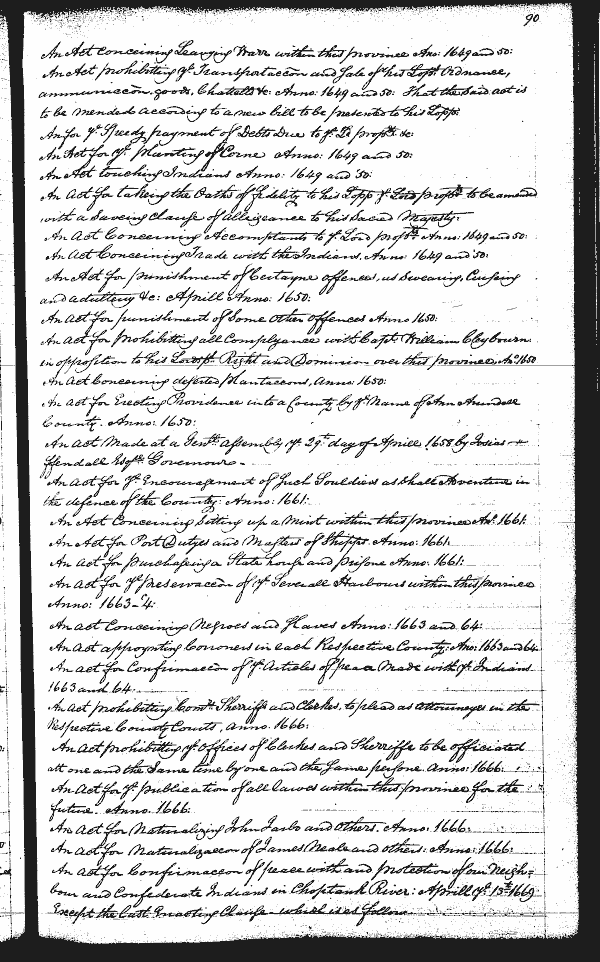 90
An Act Concerning Leavying Warr within this province Ano: 1649 and 50:
An Act prohibitting ye Transportaccon and Sale of his Lopps Ordnance,
ammuniccon, goods, Chattells &c: Anno: 1649 and 50: That the said act is
to be mended according to a new bill to be presented to his Lopp:
An for ye Speedy payment of Debts Due to ye Ld propry &c:
An Act for ye planting of Corne Anno: 1649 and 50:
An Act touching Indians Anno: 1649 and 50:
An Act for takeing the Oaths of fidelity to his Lopp ye Lord propry to be amended
with a Saveing Clause of allegeance to his Sacred Majesty:
An Act Concerning Accomptants to ye Lord propry Anno: 1649 and 50:
An Act Concerning Trade with the Indians, Anno: 1649 and 50:
An Act for punishment of Certayne offences, as Swearing, Cursing
and adultery &c: Aprill Anno: 1650:
An Act for punishment of Some other offences Anno 1650:
An Act for prohibitting all Complyance with Capt: William Cleybourn
in opposition to his Lordsps: Right and Dominion over this province Ano 1650
An Act Concerning deserted plantacons, Anno: 1650:
An Act for Erecting Providence into a County by ye Name of Ann Arundell
County. Anno: 1650:
An Act Made at a Genll Assembly ye 29th day of Aprill 1658 by Josias
ffendall Esqr Governour.
An Act for ye Encouragement of Such Souldiers as Shall Adventure in
the defence of the County: Anno: 1661:
An Act Concerning Setting up a Mint within this province Ano. 1661:
An Act for Port Dutyes and Masters of Shipps Anno: 1661:
An Act for purchaseing a State house and prisone Anno: 1661:
An Act for ye preservaccon of ye Severall Harbours within this province
Anno: 1663 & 4:
An Act Concerning Negroes and Slaves Anno: 1663 and 64:
An Act appoynting Coroners in each Respective County: Ano: 1663 and 64
An Act for Confirmaccon of ye Articles of peace Made with ye Indians
1663 and 64:
An Act prohibitting Comrs Sherriffs and Clerkes, to plead as attourneyes in the
Respective County Courts, Anno: 1666:
An Act prohibitting ye Offices of Clerkes and Sherriffs to be officiated
att one and the Same time by one and the Same persone Anno: 1666:
An Act for ye publication of all lawes within this province for the
future. Anno: 1666:
An Act for Naturalizing John Jarbo and others, Anno: 1666:
An Act for Naturalizaccon of James Neale and others: Anno: 1666:
An Act for Confirmaccon of peace with and protection of our Neigh=
bour and Confederate Indians in Choptank River: Aprill ye 15th 1669
Except the last Enacting Clause which is as follows